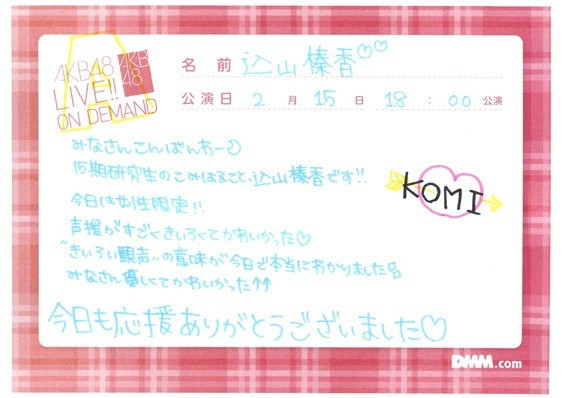 AKB48
LIVE!!
ON DEMAND
AKB
48
名 前 込山榛香♡♡
公演日 2 月 15 日 18 : 00 公演
みなさんこんばんわー♪
15期研究生のこみはること、込山榛香です!!
今日は女性限定!!
声援がすごくきいろくてかわいかった♡
"きいろい観声"の意味が今日で本当にわかりました
みなさん優しくてかわいかった↑↑
今日も応援ありがとうございました♡
KOMI
DMM.com